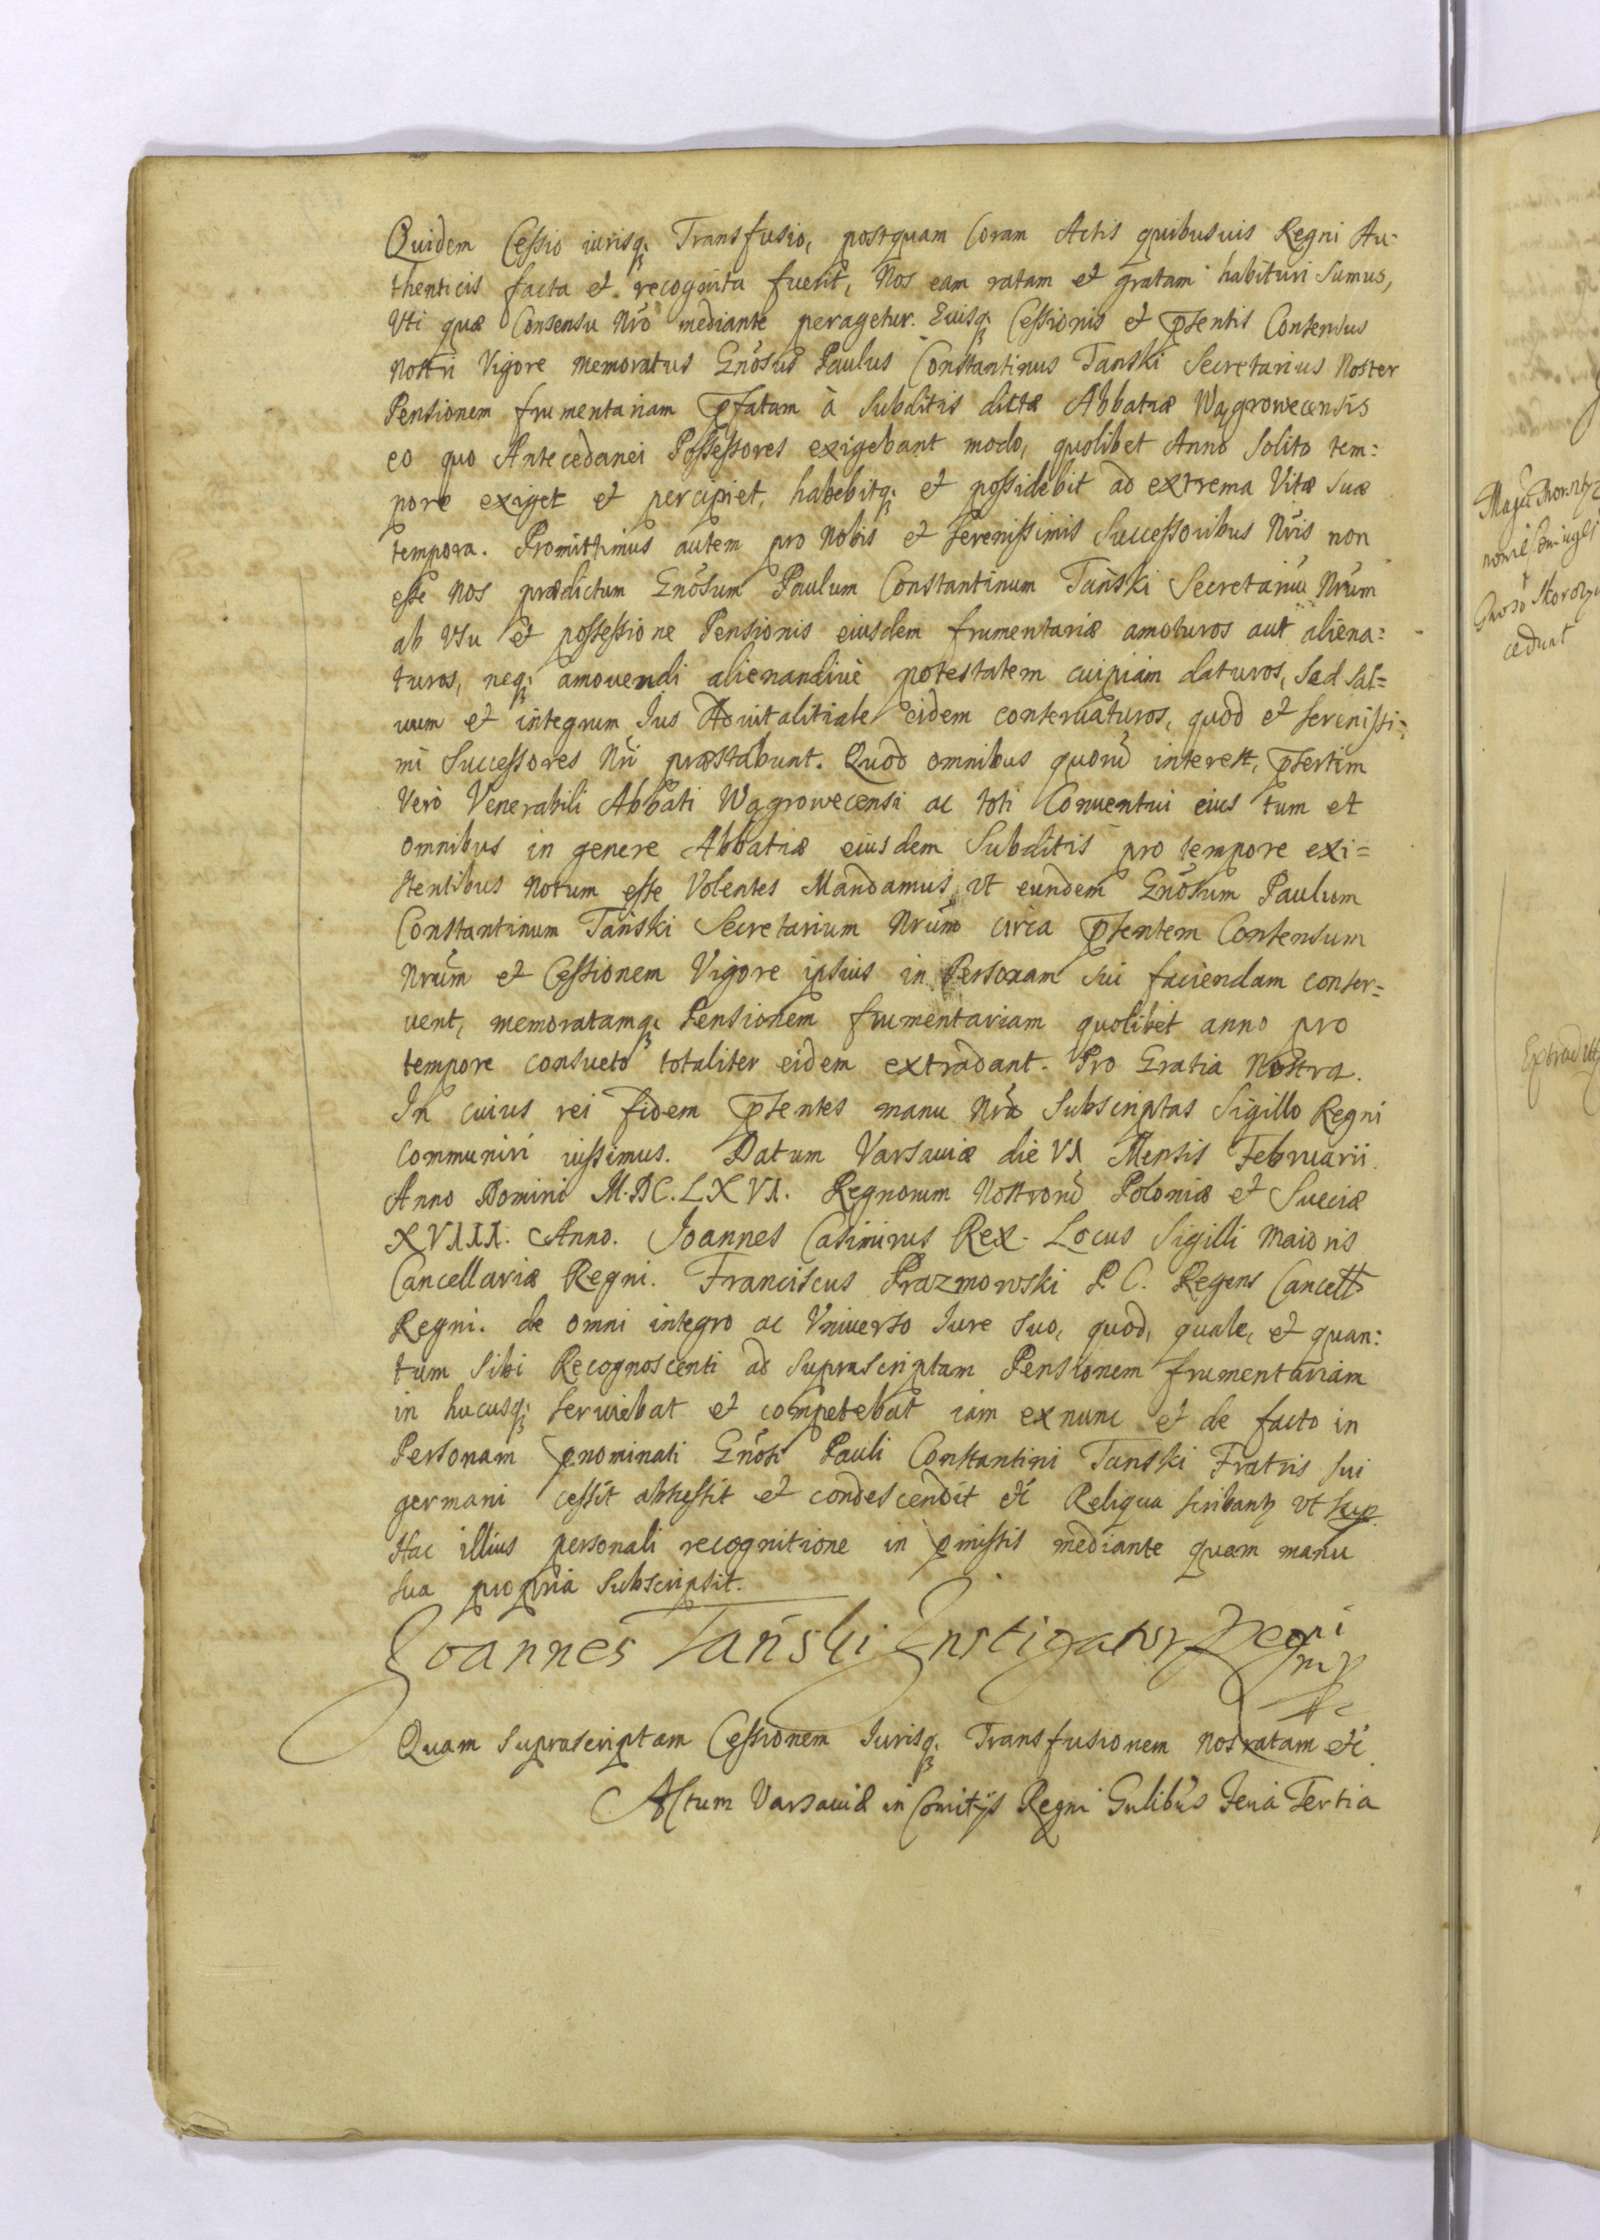 Quidem Cessio iurisq; Transfusio, postquam Coram Actis quibusuis Regni Au-
thenticis facta et recognita fuerit, Nos eam ratam et gratam habituri sumus,
Uti quæ Consensu Nrõ mediante peragetur. Euisq; Cessionis et Pñtentis Consensus
Nostri Vigore memoratus Gnõsus Paulus Constantinus Tanski Secretarius Noster
Pensionem frumentariam Pfatam à Subditis dictæ Abbatiæ Wągrowecensis
eo quo Antecedanei Possessores exigebant modo, quolibet Anno solito tem:
pore exiget et percipiet, habebitq; et possidebit ad extrema Vitæ suæ
tempora. Promittimus autem pro Nobis et Serenissimis Successoribus Nr̃is non
esse Nos prædictum Gnõsum Paulum Constantinum Tański Secretariũ Nrũm
ab Usu et possessione Pensionis eiusdem frumentariæ amoturos aut aliena=
turos, neq; amouendi alienandiue potestatem cuipiam daturos, sed sal=
uum et integrum Ius Aduitalitiale eidem conseruaturos, quod et serenissi=
mi Successores Nri præstabunt. Quod omnibus quorũ interest, Psertim
Vero Venerabili Abbati Wągrowecensi ac toti Conuentui eius tum et
omnibus in genere Abbatiæ eiusdem Subditis pro tempore exi=
stentibus Notum esse Volentes Mandamus, ut eundem Gnõsum Paulum
Constantinum Tański Secretarium Nrũm circa Psentem Consensum
Nrũm et Cessionem Vigore ipsius in Personam sui faciendam conser=
uent, memoratamq; Pensionem frumentariam quolibet anno pro
tempore consueto totaliter eidem extradant. Pro Gratia Nostra.
In cuius rei fidem Psentes manu Nrã Subscriptas Sigillo Regni
communiri iussimus. Datum Varsauiæ die VI Mensis Februarii
Anno Domini M.DC.LXVI. Regnorum Nostrorũ Poloniæ et Sueciæ
XVIII. Anno. Joannes Casimirus Rex. Locus Sigilli maioris
Cancellariæ Regni. Franciscus Prazmowski P. C. Regens Cancell
Regni. de omni integro ac Vniuerso Iure suo, quod, quale, et quan:
tum sibi Recognoscenti ad supruscriptam Pensionem frumentariam
in hucusq; seruiebat et competebat iam exnunc et de facto in
Personam pnominati Gnõsi Pauli Constantini Tanski Fratris sui
germani cessit abscessit et condescendit etć Reliqua scribantr ut sup.
Hac illius personali recognitione in pmissis mediante quam manu
sua propria subscripsit.
Joannes Tański Instigator Regni
mp
Quam supruscriptam Cessionem Iurisq; Transfusionem nos ratam etć
Actum Varsauiæ in Comitijs Regni Gnlibũs Feria Tertia
cedunt